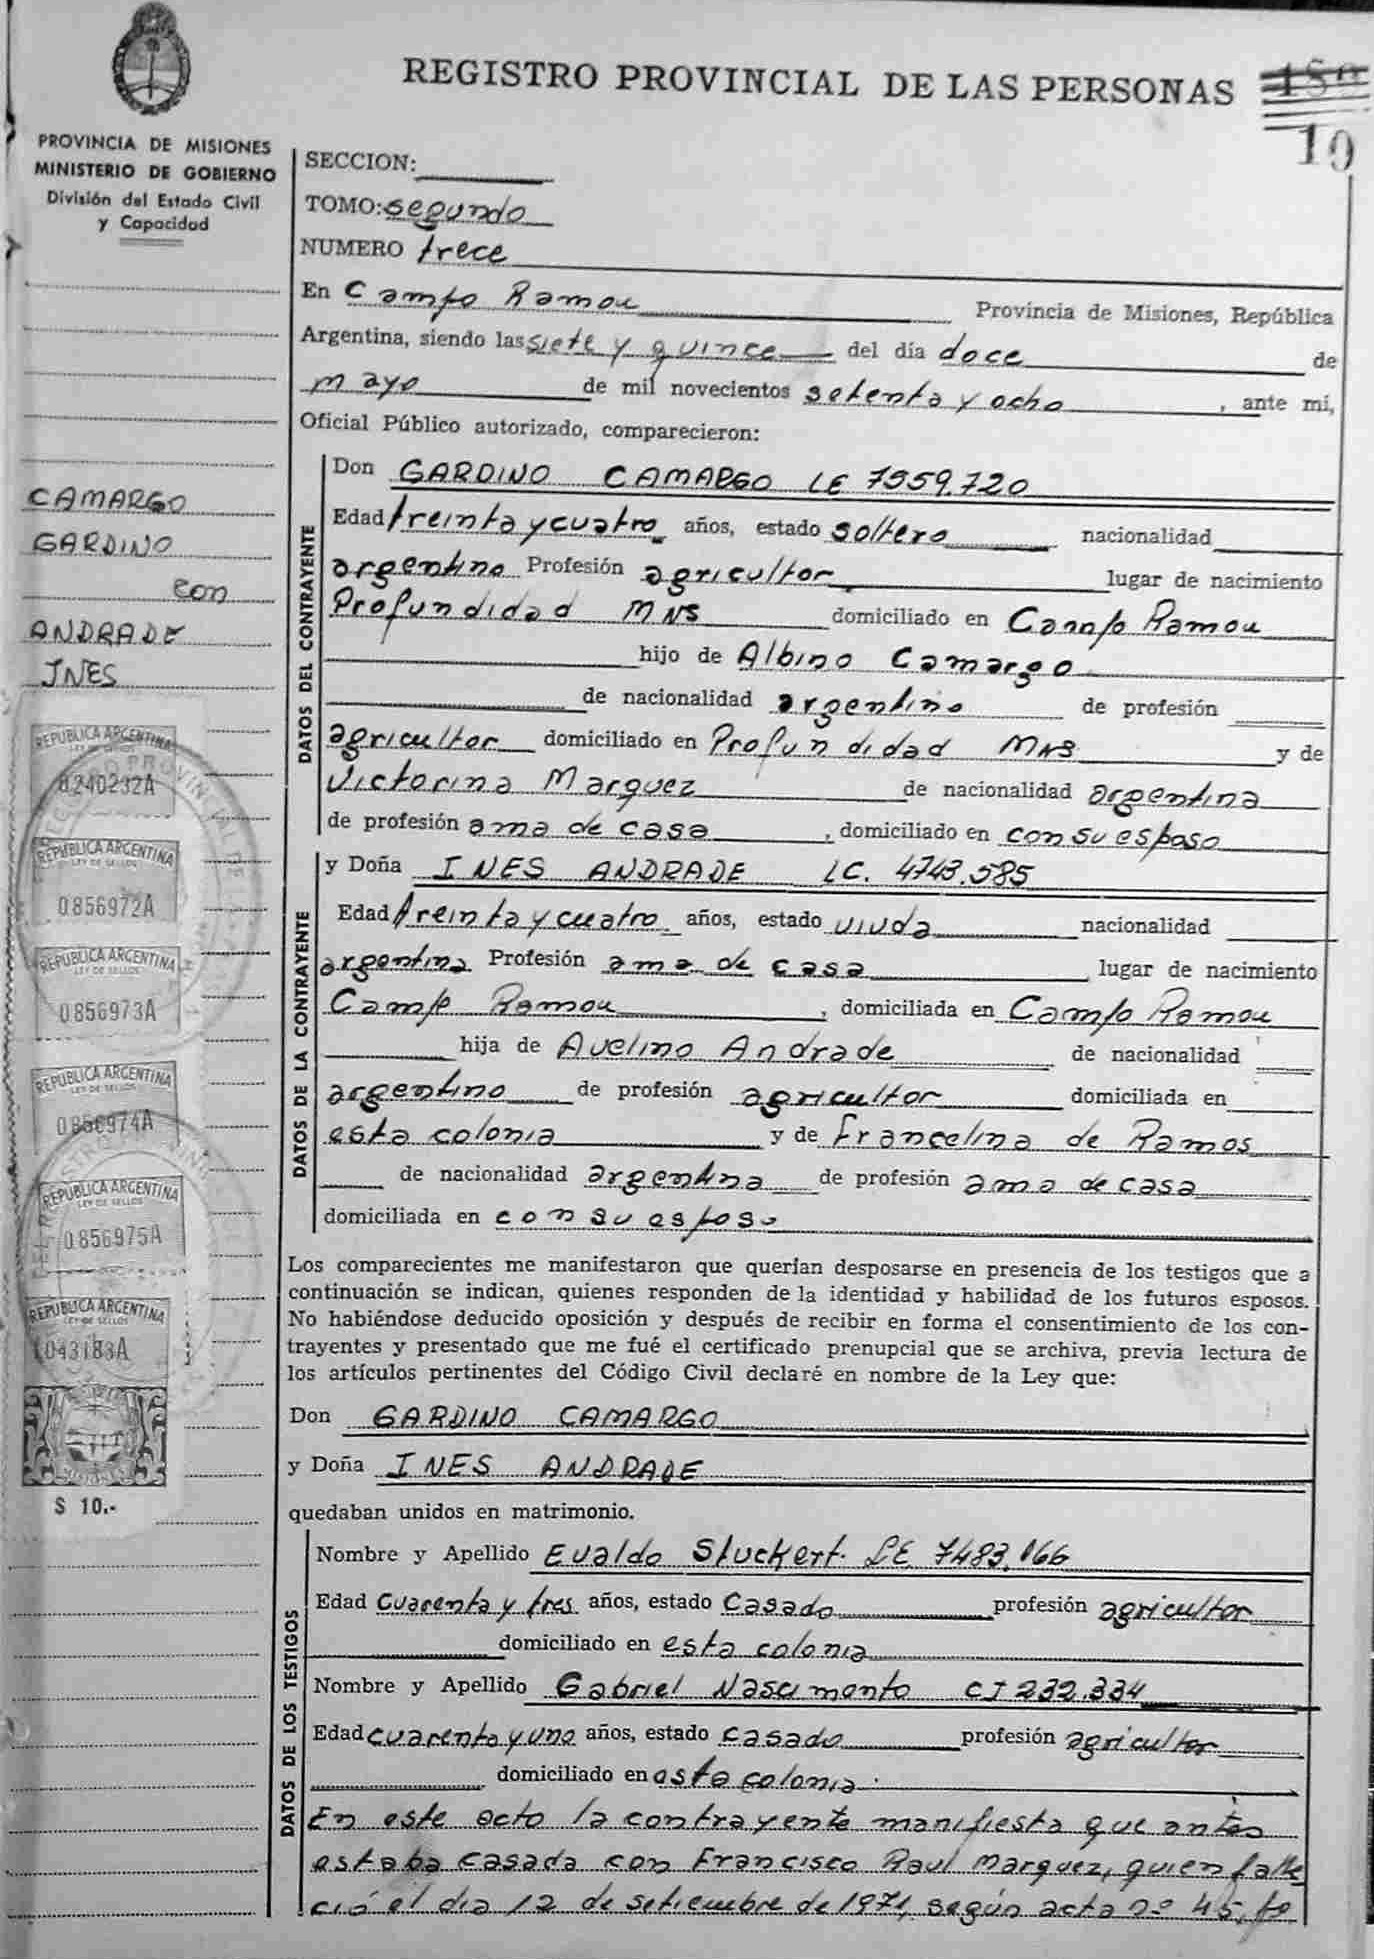 REGISTRO PROVINCIAL DE LAS PERSONAS
19
PROVINCIA DE MISIONES
MINISTERIO DE GOBIERNO
División del Estado Civil
y Capacidad
SECCION:
TOMO: segundo
NUMERO trece
En Campo Ramon Provincia de Misiones, República
Argentina, siendo las siete y quince del día doce de
mayo de mil novecientos setenta y ocho, ante mi,
Oficial Público autorizado, comparecieron:
CAMARGO
GARDINO
con
ANDRADE
INES
REPUBLICA ARGENTINA
LEY DE SELLOS
0240232A
REPUBLICA ARGENTINA
LEY DE SELLOS
0856972A
REPUBLICA ARGENTINA
LEY DE SELLOS
0856973A
REPUBLICA ARGENTINA
LEY DE SELLOS
0856974A
REPUBLICA ARGENTINA
LEY DE SELLOS
0856975A
REPUBLICA ARGENTINA
LEY DE SELLOS
1043183A
$ 10.-
DATOS DEL CONTRAYENTE
Don GARDINO CAMARGO LE 7559.720
Edad treinta y cuatro años, estado soltero nacionalidad
argentino Profesión agricultor lugar de nacimiento
Profundidad MNS domiciliado en Campo Ramon
hijo de Albino Camargo
de nacionalidad argentino de profesión
agricultor domiciliado en Profundidad MNS y de
Victorina Marquez de nacionalidad argentina
de profesión ama de casa, domiciliado en con su esposo
DATOS DE LA CONTRAYENTE
y Doña INES ANDRADE LC. 4743.585
Edad treinta y cuatro años, estado viuda nacionalidad
argentina Profesión ama de casa lugar de nacimiento
Campo Ramon, domiciliada en Campo Ramon
hija de Avelino Andrade de nacionalidad
argentino de profesión agricultor domiciliada en
esta colonia y de Francelina de Ramos
de nacionalidad argentina de profesión ama de casa
domiciliada en con su esposo
Los comparecientes me manifestaron que querían desposarse en presencia de los testigos que a
continuación se indican, quienes responden de la identidad y habilidad de los futuros esposos.
No habiéndose deducido oposición y después de recibir en forma el consentimiento de los con-
trayentes y presentado que me fué el certificado prenupcial que se archiva, previa lectura de
los artículos pertinentes del Código Civil declaré en nombre de la Ley que:
Don GARDINO CAMARGO
y Doña INES ANDRADE
quedaban unidos en matrimonio.
DATOS DE LOS TESTIGOS
Nombre y Apellido Evaldo Stuckert. LE 7483.166
Edad cuarenta y tres años, estado Casado profesión agricultor
domiciliado en esta colonia
Nombre y Apellido Gabriel Nascimento CI 232.334
Edad cuarenta y uno años, estado casado profesión agricultor
domiciliado en esta colonia.
En este acto la contrayente manifiesta que antes
estaba casada con Francisco Raul Marquez, quien falle
ció el dia 12 de setiembre de 1971, según acta nº 45, fº